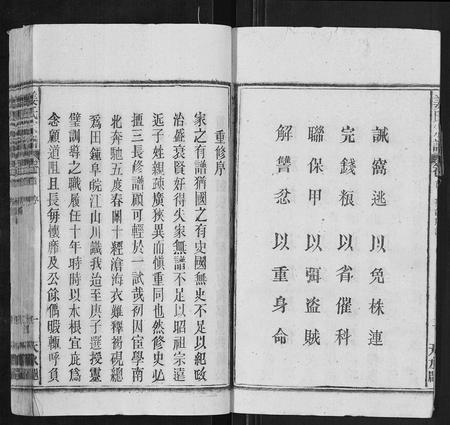 誡窩逃以免株連
完錢粮以省催科
聯保甲以弭盜賊
解讐忿以重身命
重修序
家之有譜猶國之有史國無史不足以紀政
治盛衰賢奸得失家無譜不足以昭祖宗遠
近子姓親疎廣狹異而慎重同也然修史必
擅三長修譜顧可輕於一試哉初因宦學南
北奔馳五度春闈十經滄海衣難釋芻硯總
為田鐘阜皖江山川識我迨至庚子選授靈
璧訓導之職履任十年時時以水根宜庇為
念顧道阻且長每懷靡及公餘偶暇輒呼負